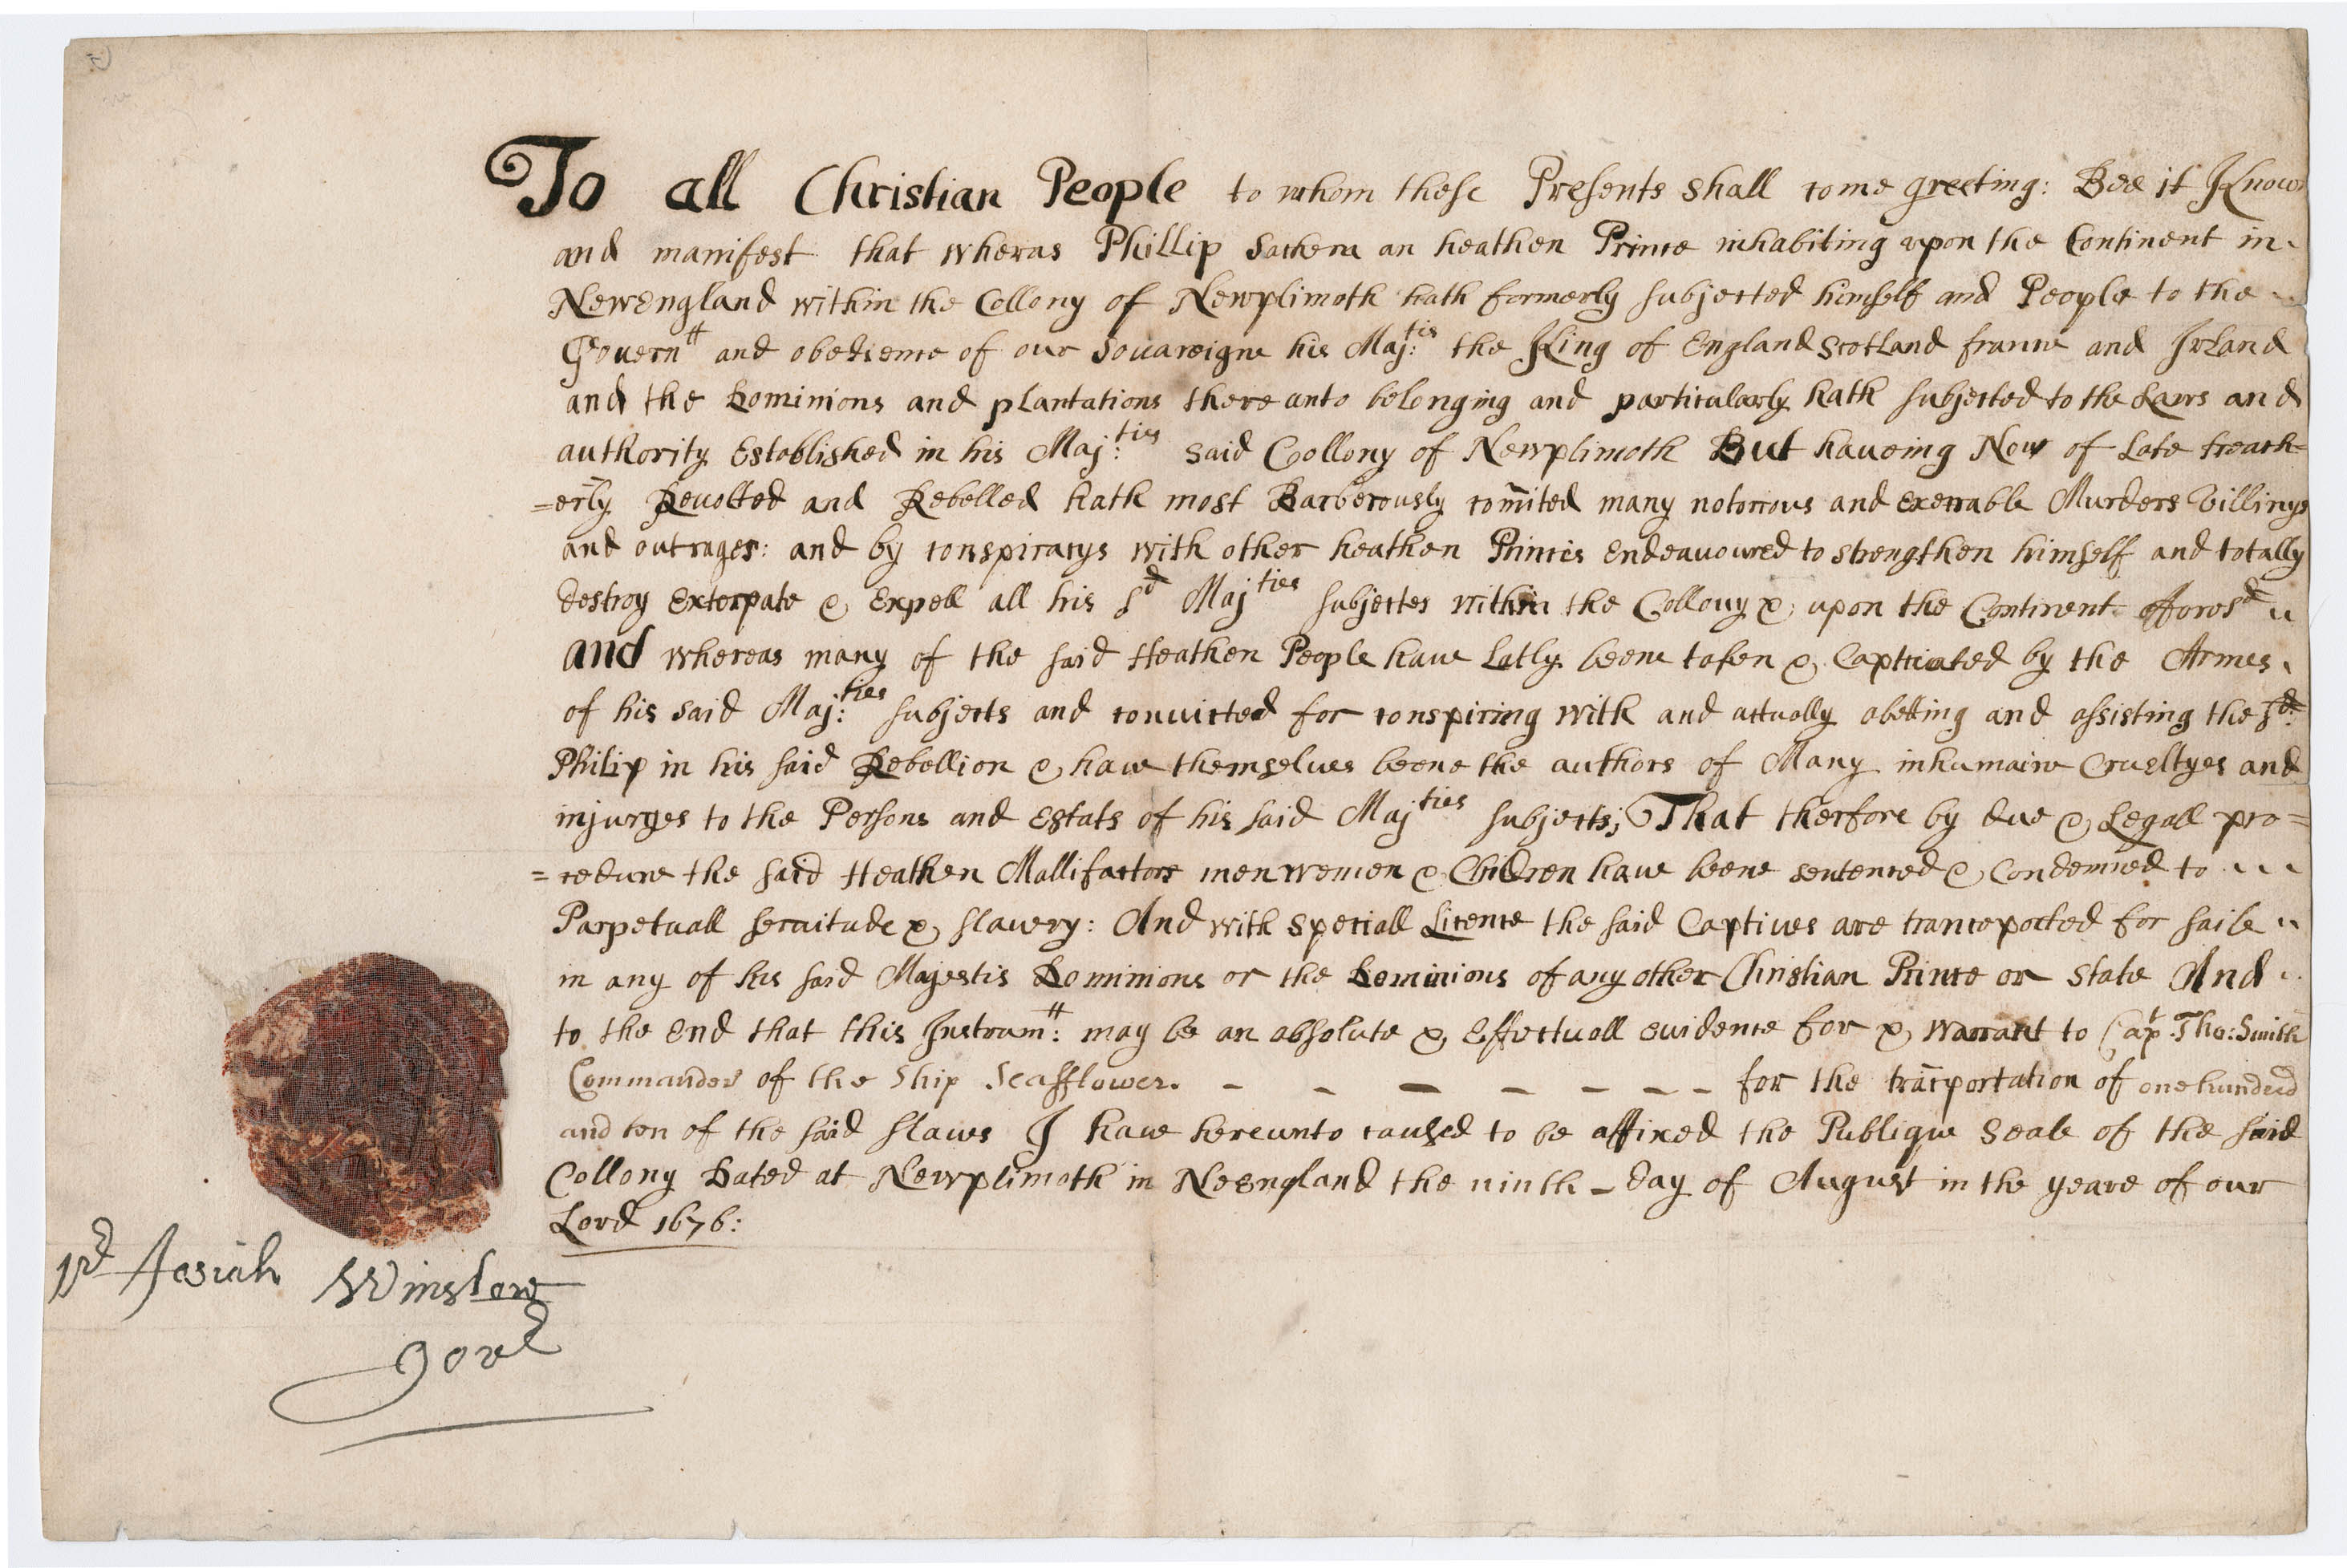 To all Christian People to whom these Presents shall come greeting: Bee it Know
and manifest that wheras Phillip Sachem an heathen Prince inhabiting upon the Continent in
NewEngland within the Collony of Newplimoth hath formerly subjected himself and People to the
Govern^tt and obedience of our Souaraigne his Maj:^tis the King of England Scotland france and Irland
and the Dominions and plantations there unto belonging and particularly hath subjected to the Laws and
authority Established in his Maj:^ties said Collony of Newplimoth But haueing Now of Late treach=
=erly Reuolted and Rebelled hath most Barberously com̄ited many notorious and execrable Murders Villinys
and outrages: and by conspiracys with other heathen Princis Endeauoured to strengthen himself and totally
destroy Exterpate & Expell all his s^d Maj^ties subjectes within the Collony & upon the Continent affores^d
and whereas many of the said Heathen People haue Latly beene taken & Captiuated by the Armes
of his said Maj:^ties subjects and conuicted for conspiring with and actually abetting and assisting the s^d:
Philip in his said Rebellion & haue themselues beene the authors of Many inhumaine Crueltyes and
injuryes to the Persons and Estats of his said Maj^ties subjects; That therfore by due & Legall pro=
=cedure the said Heathen Mallifactors men women & Children haue beene sentenced & Condemned to
Parpetuall seruitude & slauery: And with speciall Licence the said Captiues are trancepoted for saile
in any of his said Majestis Dominions or the Dominions of any other Christian Prince or state And
to the End that this Instrum^tt: may be an absolute & Effectuall euidence for & warrant to Cap^t. Tho: Smith
Commander of the Ship Seafflower. - - - - - - - for the trāsportation of one hundred
and ten of the said slaues I haue hereunto caused to be affixed the Publique Seale of the said
Collony Dated at Newplimoth in NeEngland the ninth - day of August in the yeare of our
Lord 1676:
Josiah Winslow